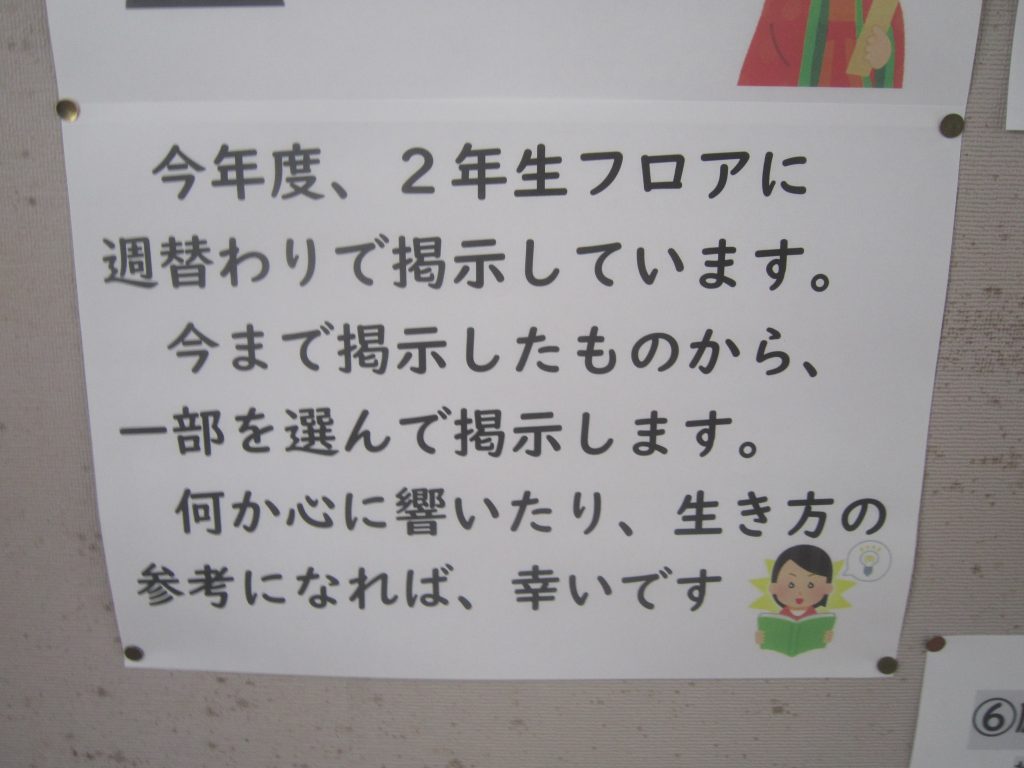 今年度、２年生フロアに
週替わりで掲示しています。
今まで掲示したものから、
一部を選んで掲示します。
何か心に響いたり、生き方の
参考になれば、幸いです
⑥